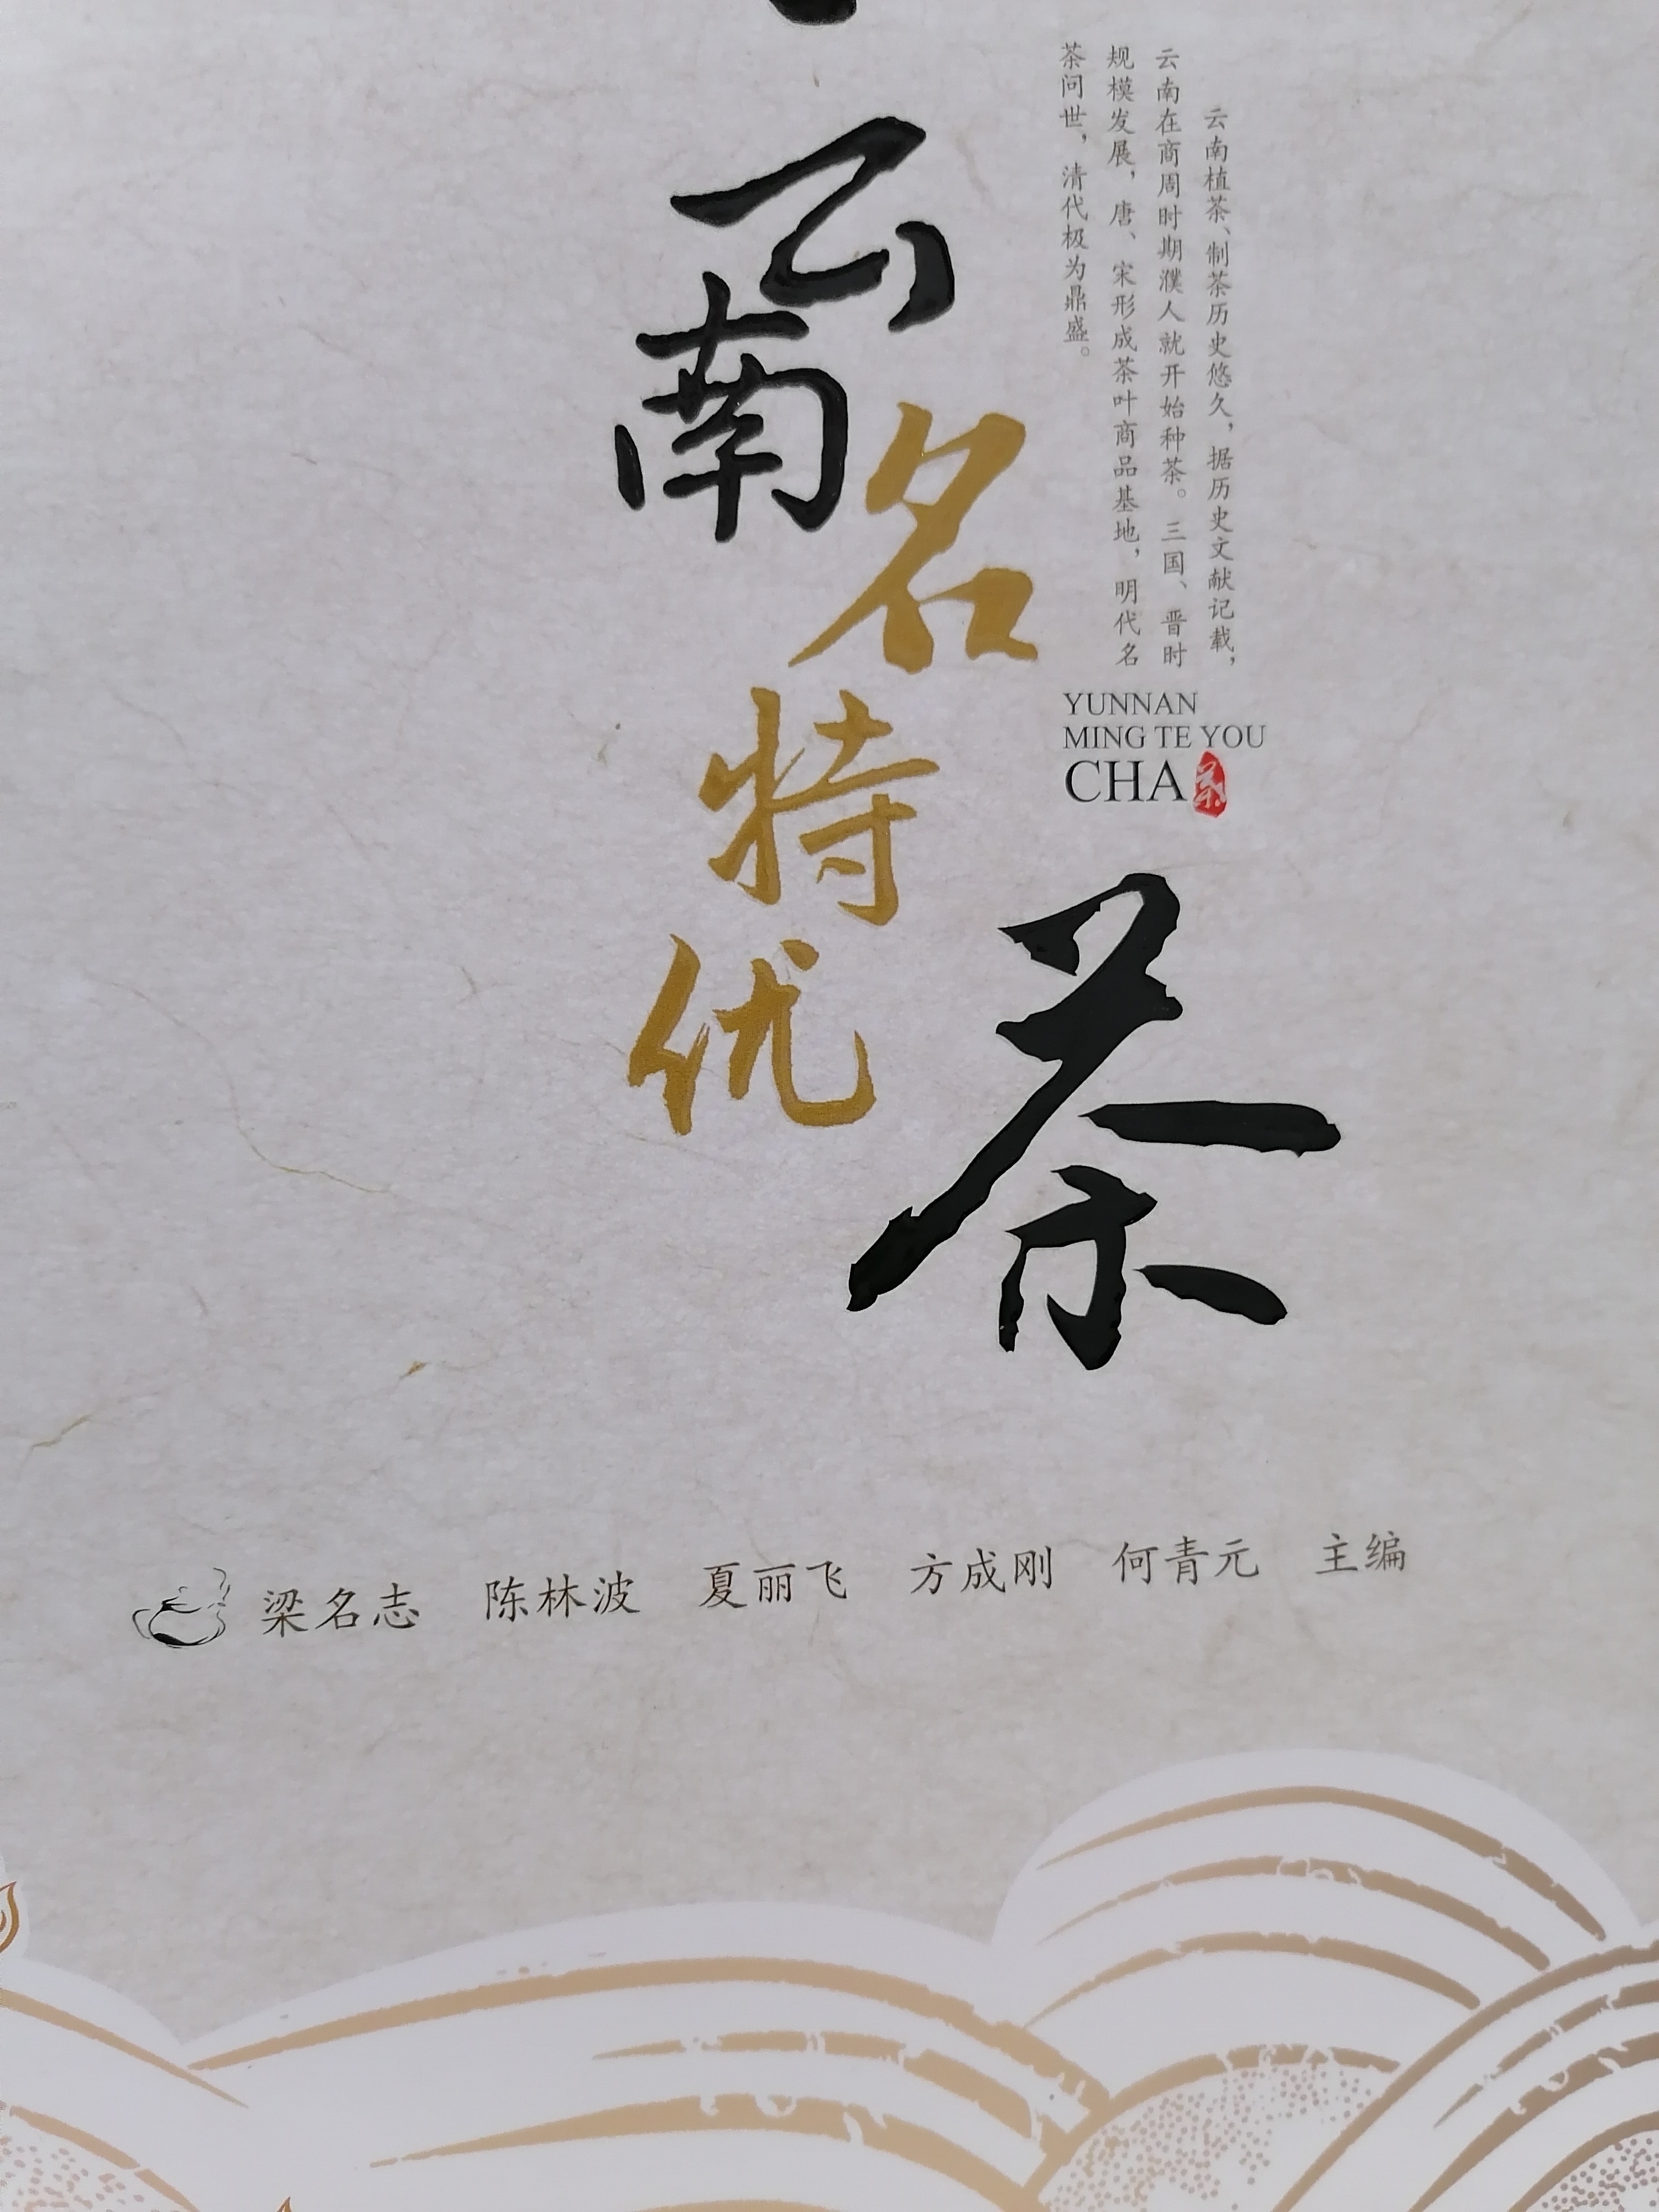 云南
名特优
茶
云南植茶、制茶历史悠久，据历史文献记载，
云南在商周时期濮人就开始种茶。三国、晋时
规模发展，唐、宋形成茶叶商品基地，明代名
茶问世，清代极为鼎盛。
YUNNAN
MING TE YOU
CHA
茶
梁名志 陈林波 夏丽飞 方成刚 何青元 主编